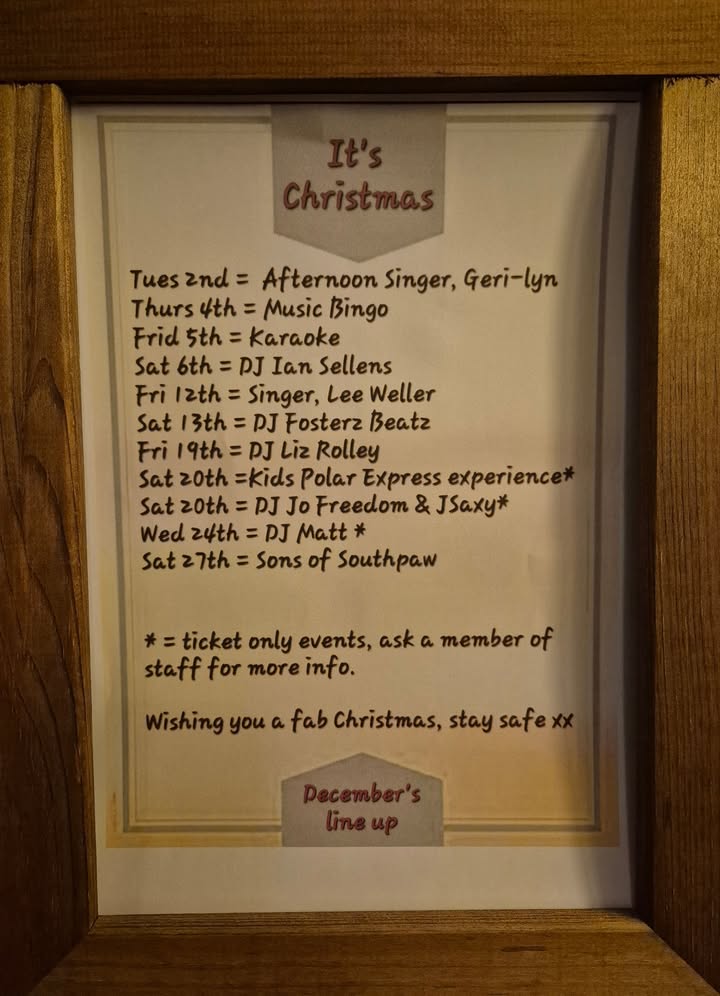 It's
Christmas
Tues 2nd = Afternoon Singer, Geri-lyn
Thurs 4th = Music Bingo
Frid 5th = Karaoke
Sat 6th = DJ Ian Sellens
Fri 12th = Singer, Lee Weller
Sat 13th = DJ Fosterz Beatz
Fri 19th = DJ Liz Rolley
Sat 20th =Kids Polar Express experience*
Sat 20th = DJ Jo Freedom & JSaxy*
Wed 24th = DJ Matt *
Sat 27th = Sons of Southpaw
* = ticket only events, ask a member of
staff for more info.
Wishing you a fab Christmas, stay safe xx
December's
line up